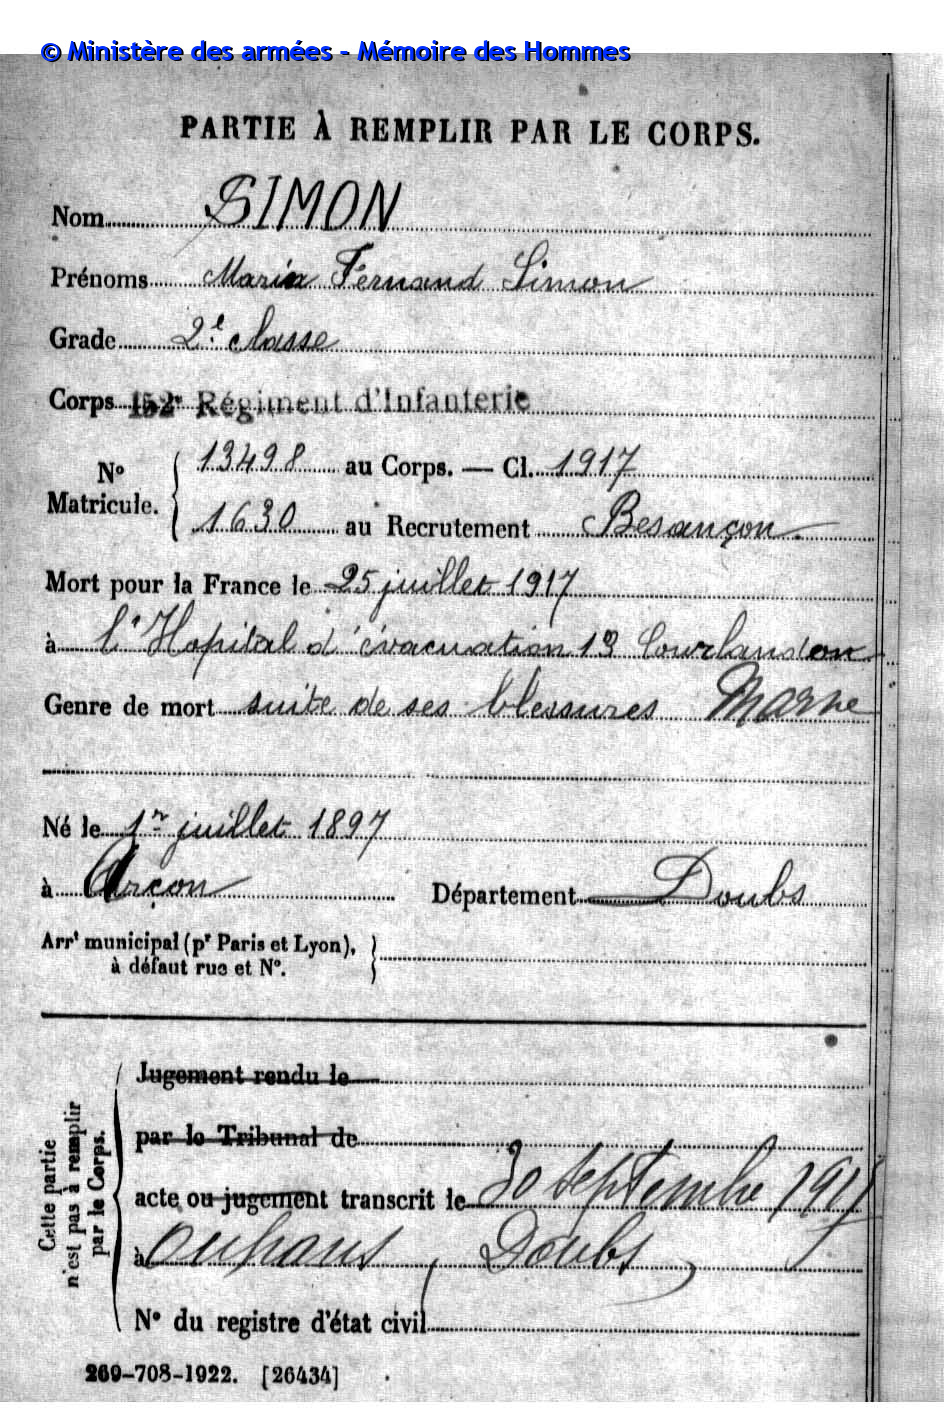 © Ministère des armées - Mémoire des Hommes
PARTIE À REMPLIR PAR LE CORPS.
Nom SIMON
Prénoms Maria Fernand Simon
Grade 2e classe
Corps 152e Régiment d'Infanterie
N° Matricule. { 13498 au Corps. — Cl. 1917
1630 au Recrutement Besançon
Mort pour la France le 25 juillet 1917
à l'Hopital d'évacuation 13 Courlandon
Genre de mort suite de ses blessures Marne
Né le 1er juillet 1897
à Arçon Département Doubs
Arrt municipal (pr Paris et Lyon), à défaut rue et N°.
Cette partie n'est pas à remplir par le Corps.
Jugement rendu le
par le Tribunal de
acte ou jugement transcrit le 30 septembre 1917
à Ouhans, Doubs
N° du registre d'état civil
269-708-1922. [26434]